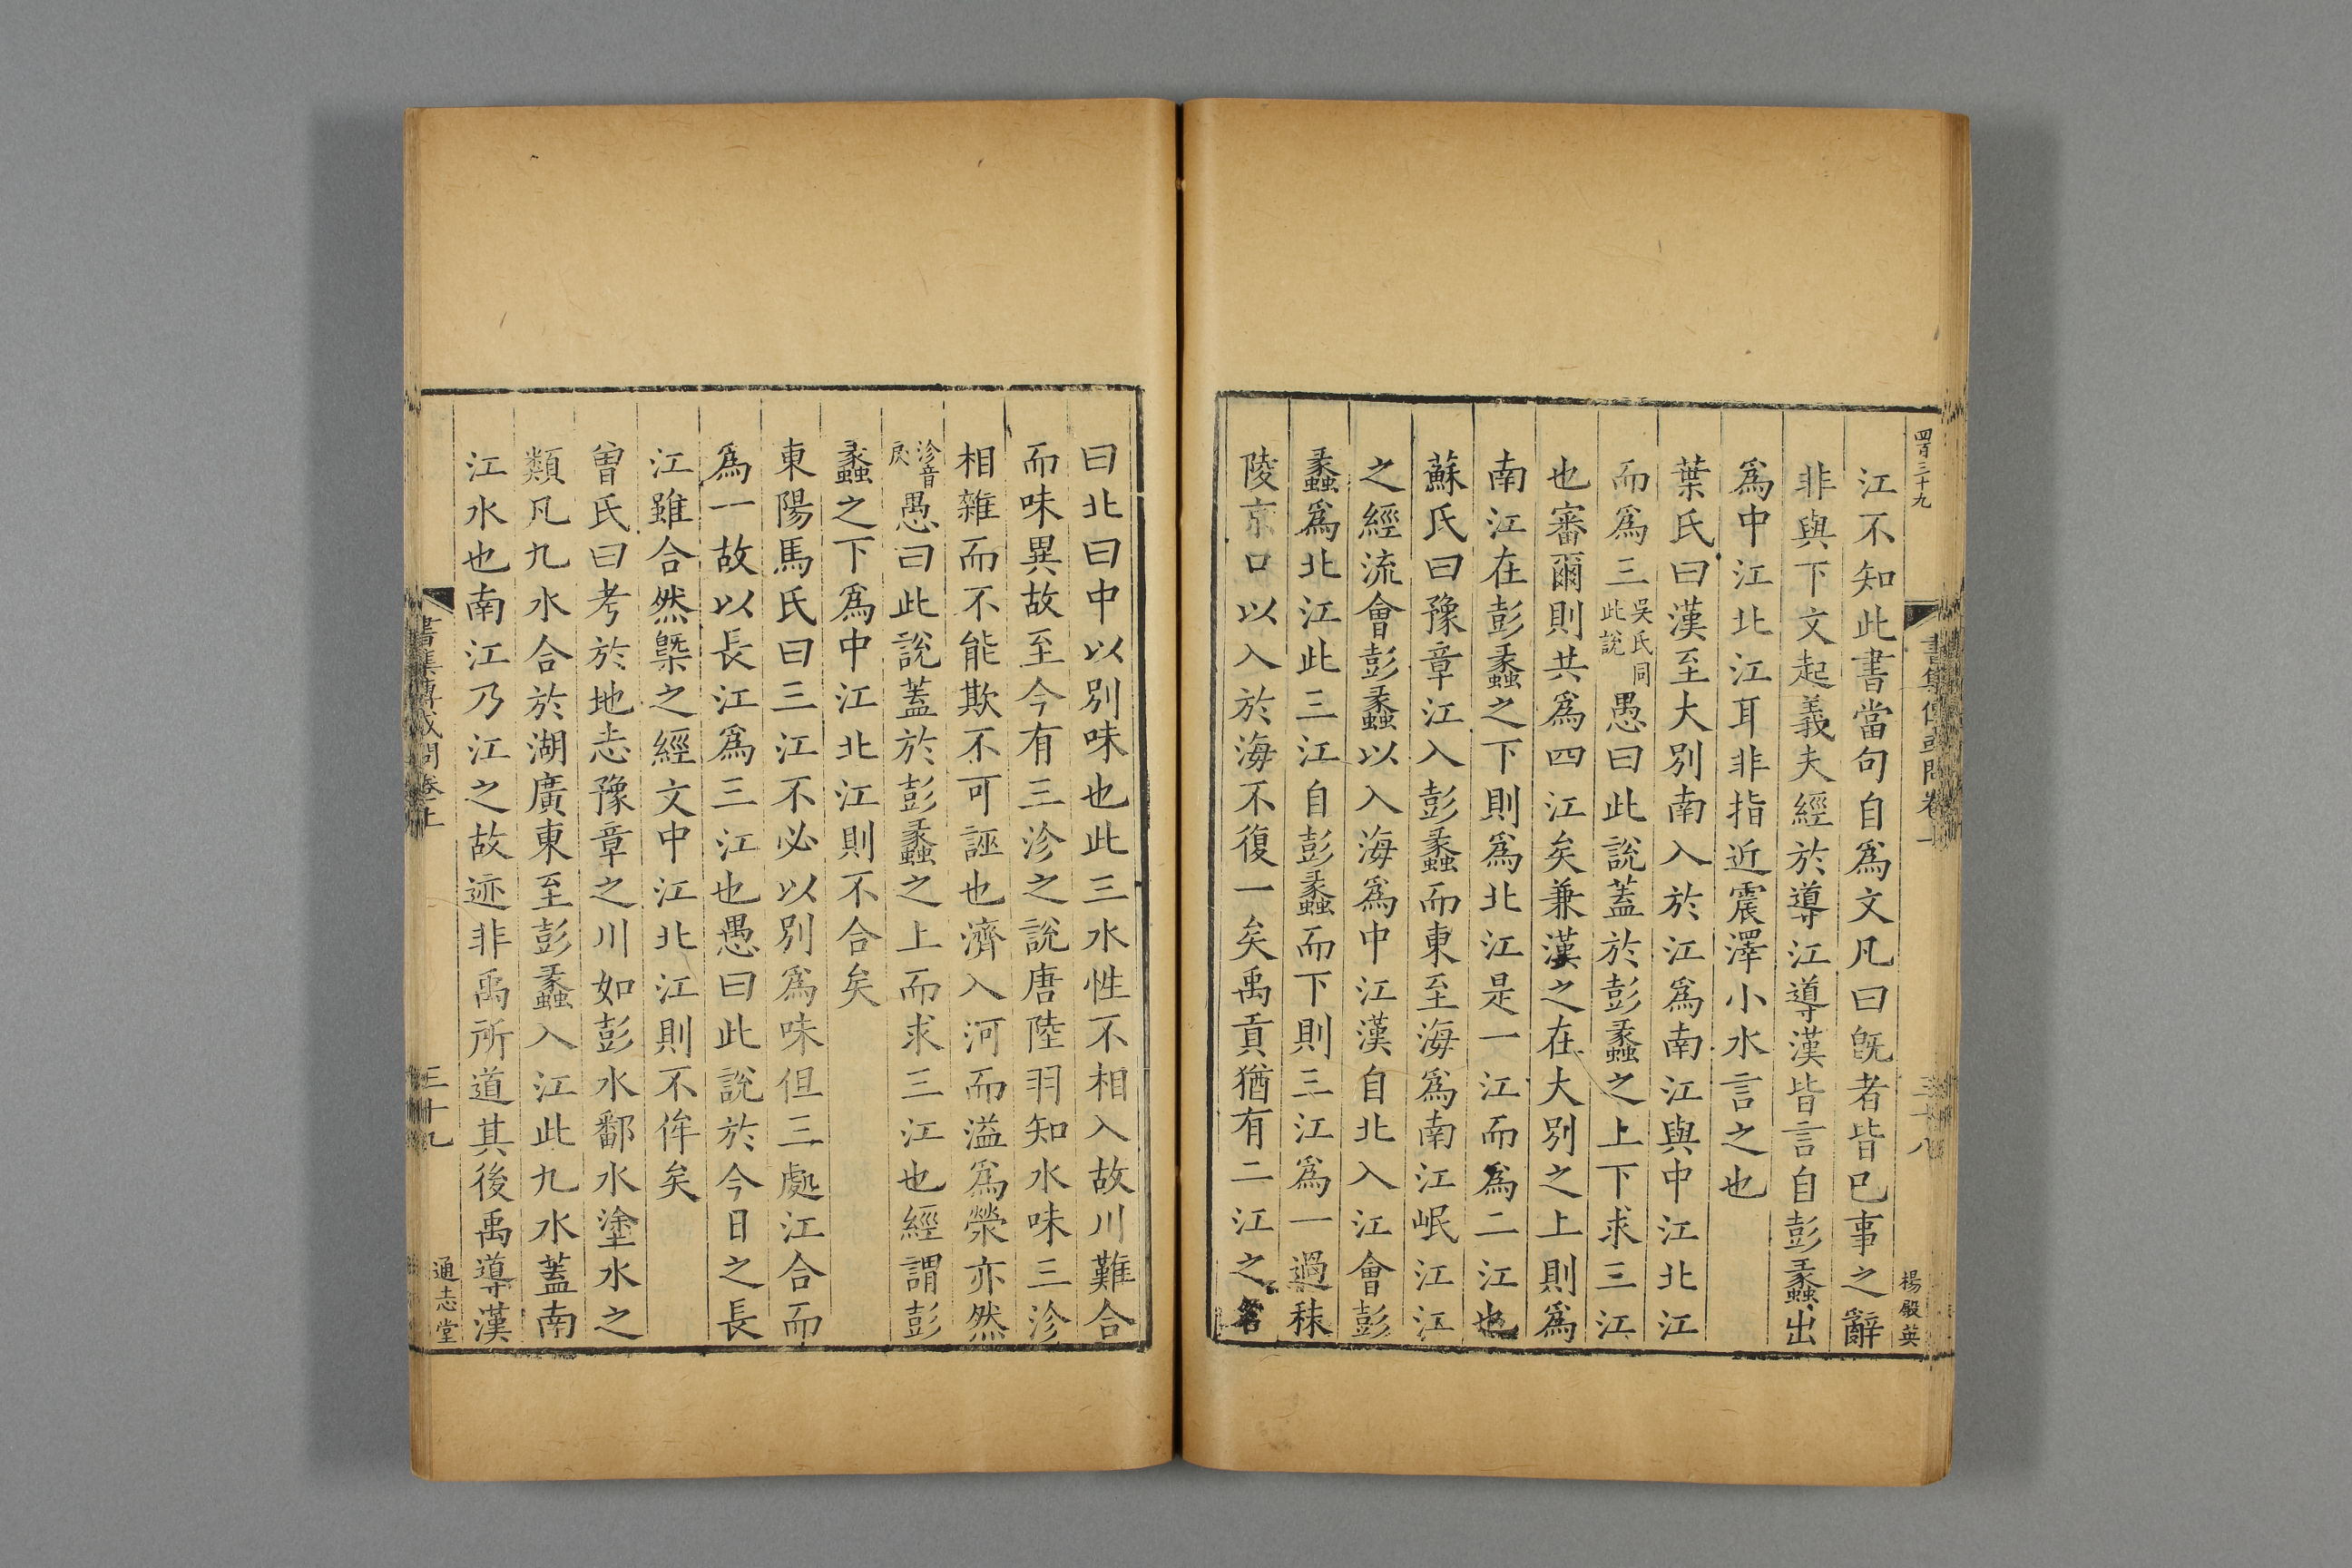 四百三十九
書集傳或問卷上
三十八
楊殿英
江不知此書當句自爲文凡曰旣者皆巳事之辭
非與下文起義夫經於導江導漢皆言自彭蠡出
爲中江北江耳非指近震澤小水言之也
葉氏曰漢至大別南入於江爲南江與中江北江
而爲三吳氏同此說愚曰此說蓋於彭蠡之上下求三江
也審爾則共爲四江矣兼漢之在大別之上則爲
南江在彭蠡之下則爲北江是一江而爲二江也
蘇氏曰豫章江入彭蠡而東至海爲南江岷江江
之經流會彭蠡以入海爲中江漢自北入江會彭
蠡爲北江此三江自彭蠡而下則三江爲一過秣
陵京口以入於海不復一矣禹貢猶有二江之名
曰北曰中以別味也此三水性不相入故川難合
而味異故至今有三泠之說唐陸羽知水味三泠
相雜而不能欺不可誣也濟入河而溢爲滎亦然
泠音戾愚曰此說蓋於彭蠡之上而求三江也經謂彭
蠡之下爲中江北江則不合矣
東陽馬氏曰三江不必以別爲味但三處江合而
爲一故以長江爲三江也愚曰此說於今日之長
江雖合然槩之經文中江北江則不侔矣
曾氏曰考於地志豫章之川如彭水鄱水塗水之
類凡九水合於湖廣東至彭蠡入江此九水蓋南
江水也南江乃江之故迹非禹所道其後禹導漢
書集傳或問卷上
三十九
通志堂